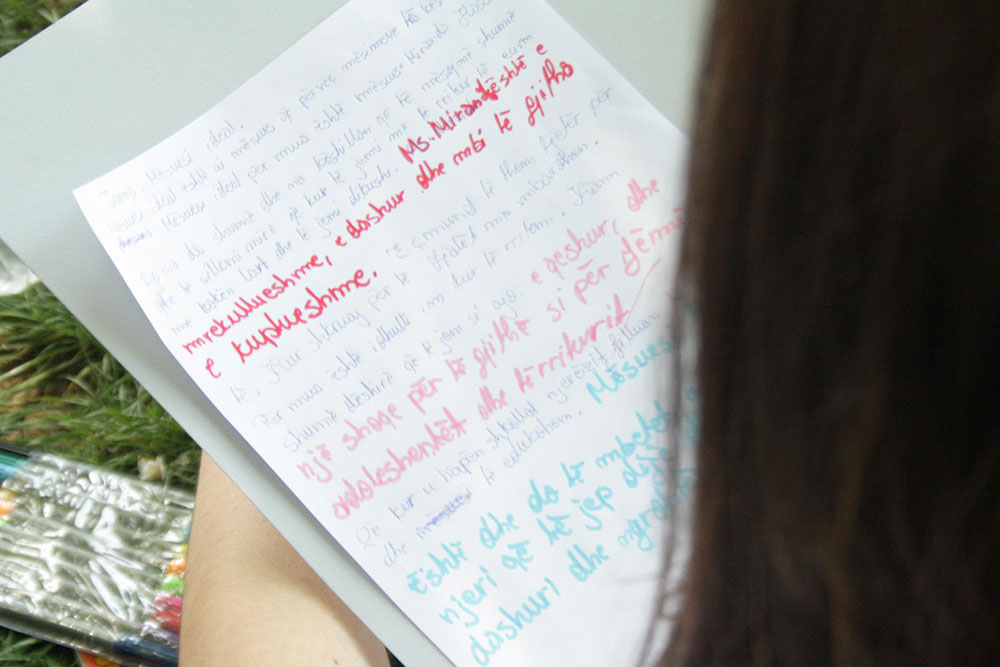 Tema: Mësuesi ideal.
ideal është ai mësues që përveç mësimeve të
Mësuesi ideal për mua është mësuese Miranda
do shumë dhe na këshillon që të mësojmë shumë
të sillemi mirë që kur të jemi më të rritur të
me kokën lart dhe të jemi dikushi. Ms. Miranda është e
mrekullueshme, e dashur dhe mbi të gjitha
e kuptueshme.
të. Kur shkruaj për të e çmund të them, fjalët më mbarohen.
Për mua është idhulli im kur të rritem. Kam
shumë dëshirë që të jem si ajo: e qeshur, dhe
një shoqe për të gjithë si për fëmijë
adoleshentët dhe të rriturit
Që kur u hapën shkollat njerëzit filluan
dhe të edukohem. Mësues
është dhe do të mbetet
njeri që të jep
dashuri dhe